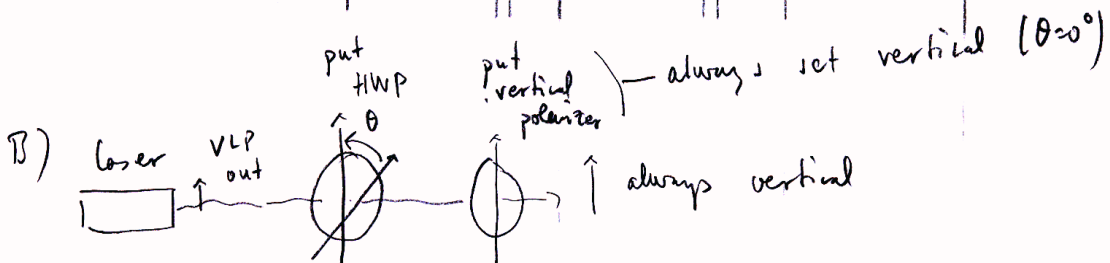 put
HWP
θ
put
vertical
polarizer
always set vertical (θ=0°)
B)
laser
VLP
out
always vertical